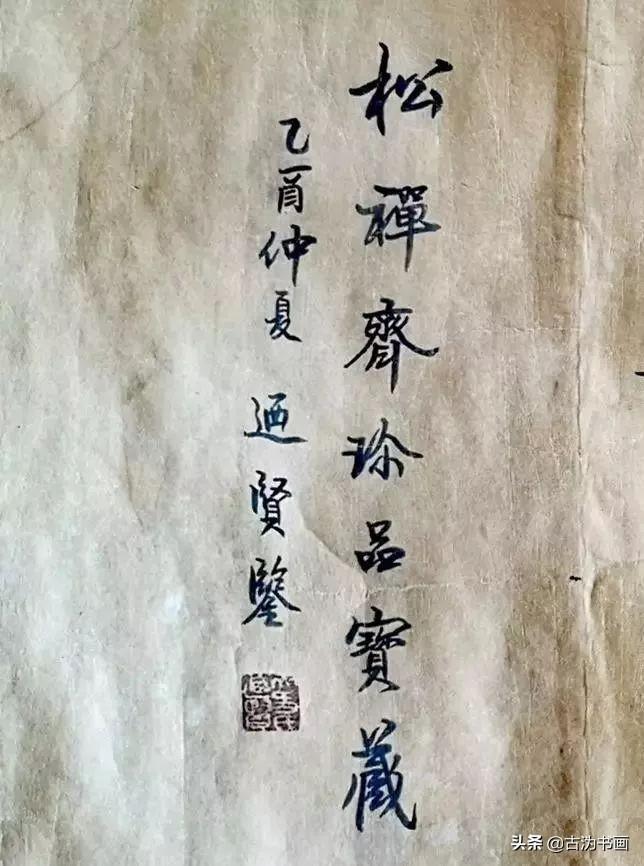 松禪齊珍品寶藏
乙酉仲夏 迺賢鑒
头条 @古沩书画